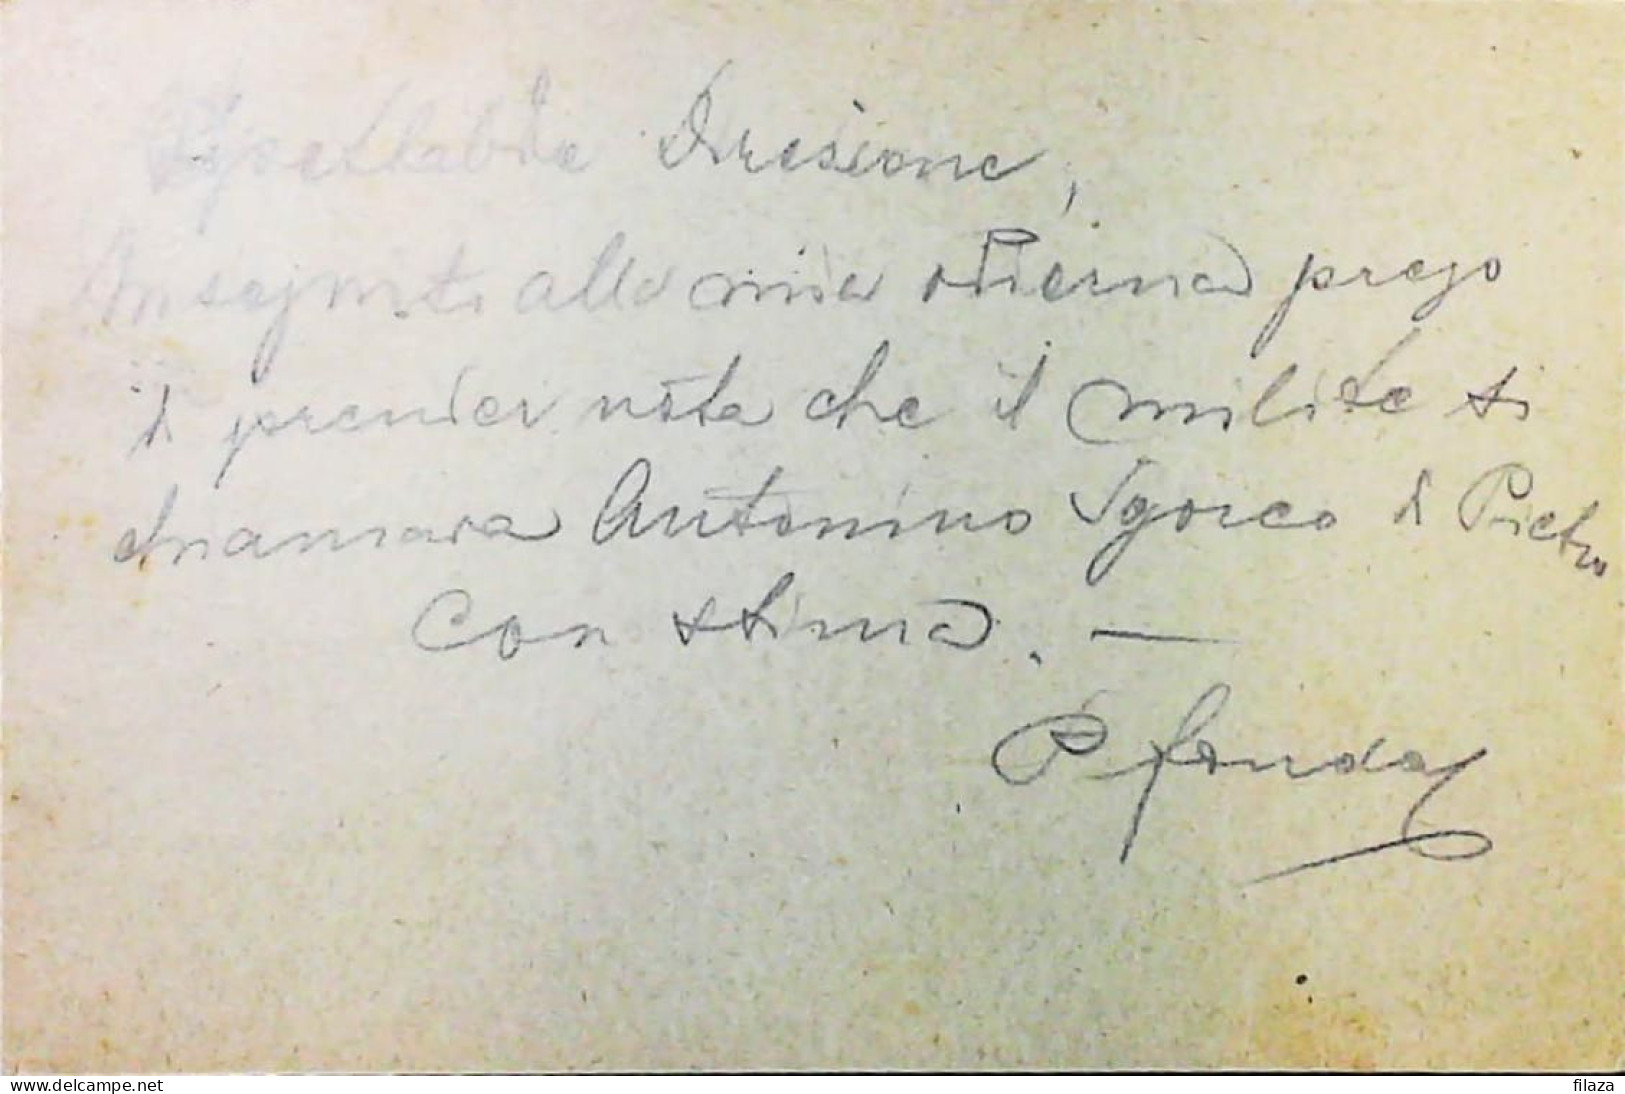 Spettabile Direzione,
In seguito alla mia odierna prego
di prender nota che il milite si
chiamava Antonino Sgorco di Pietro
Con stima. —
P. Fonda
www.delcampe.net
filaza